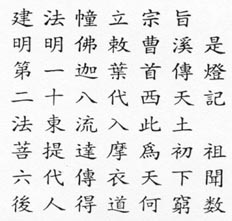 建法幢立宗旨
明明佛敕曹溪是
第一迦葉首傳燈
二十八代西天記
法東流入此土
菩提達摩爲初祖
六代傳衣天下聞
後人得道何窮數